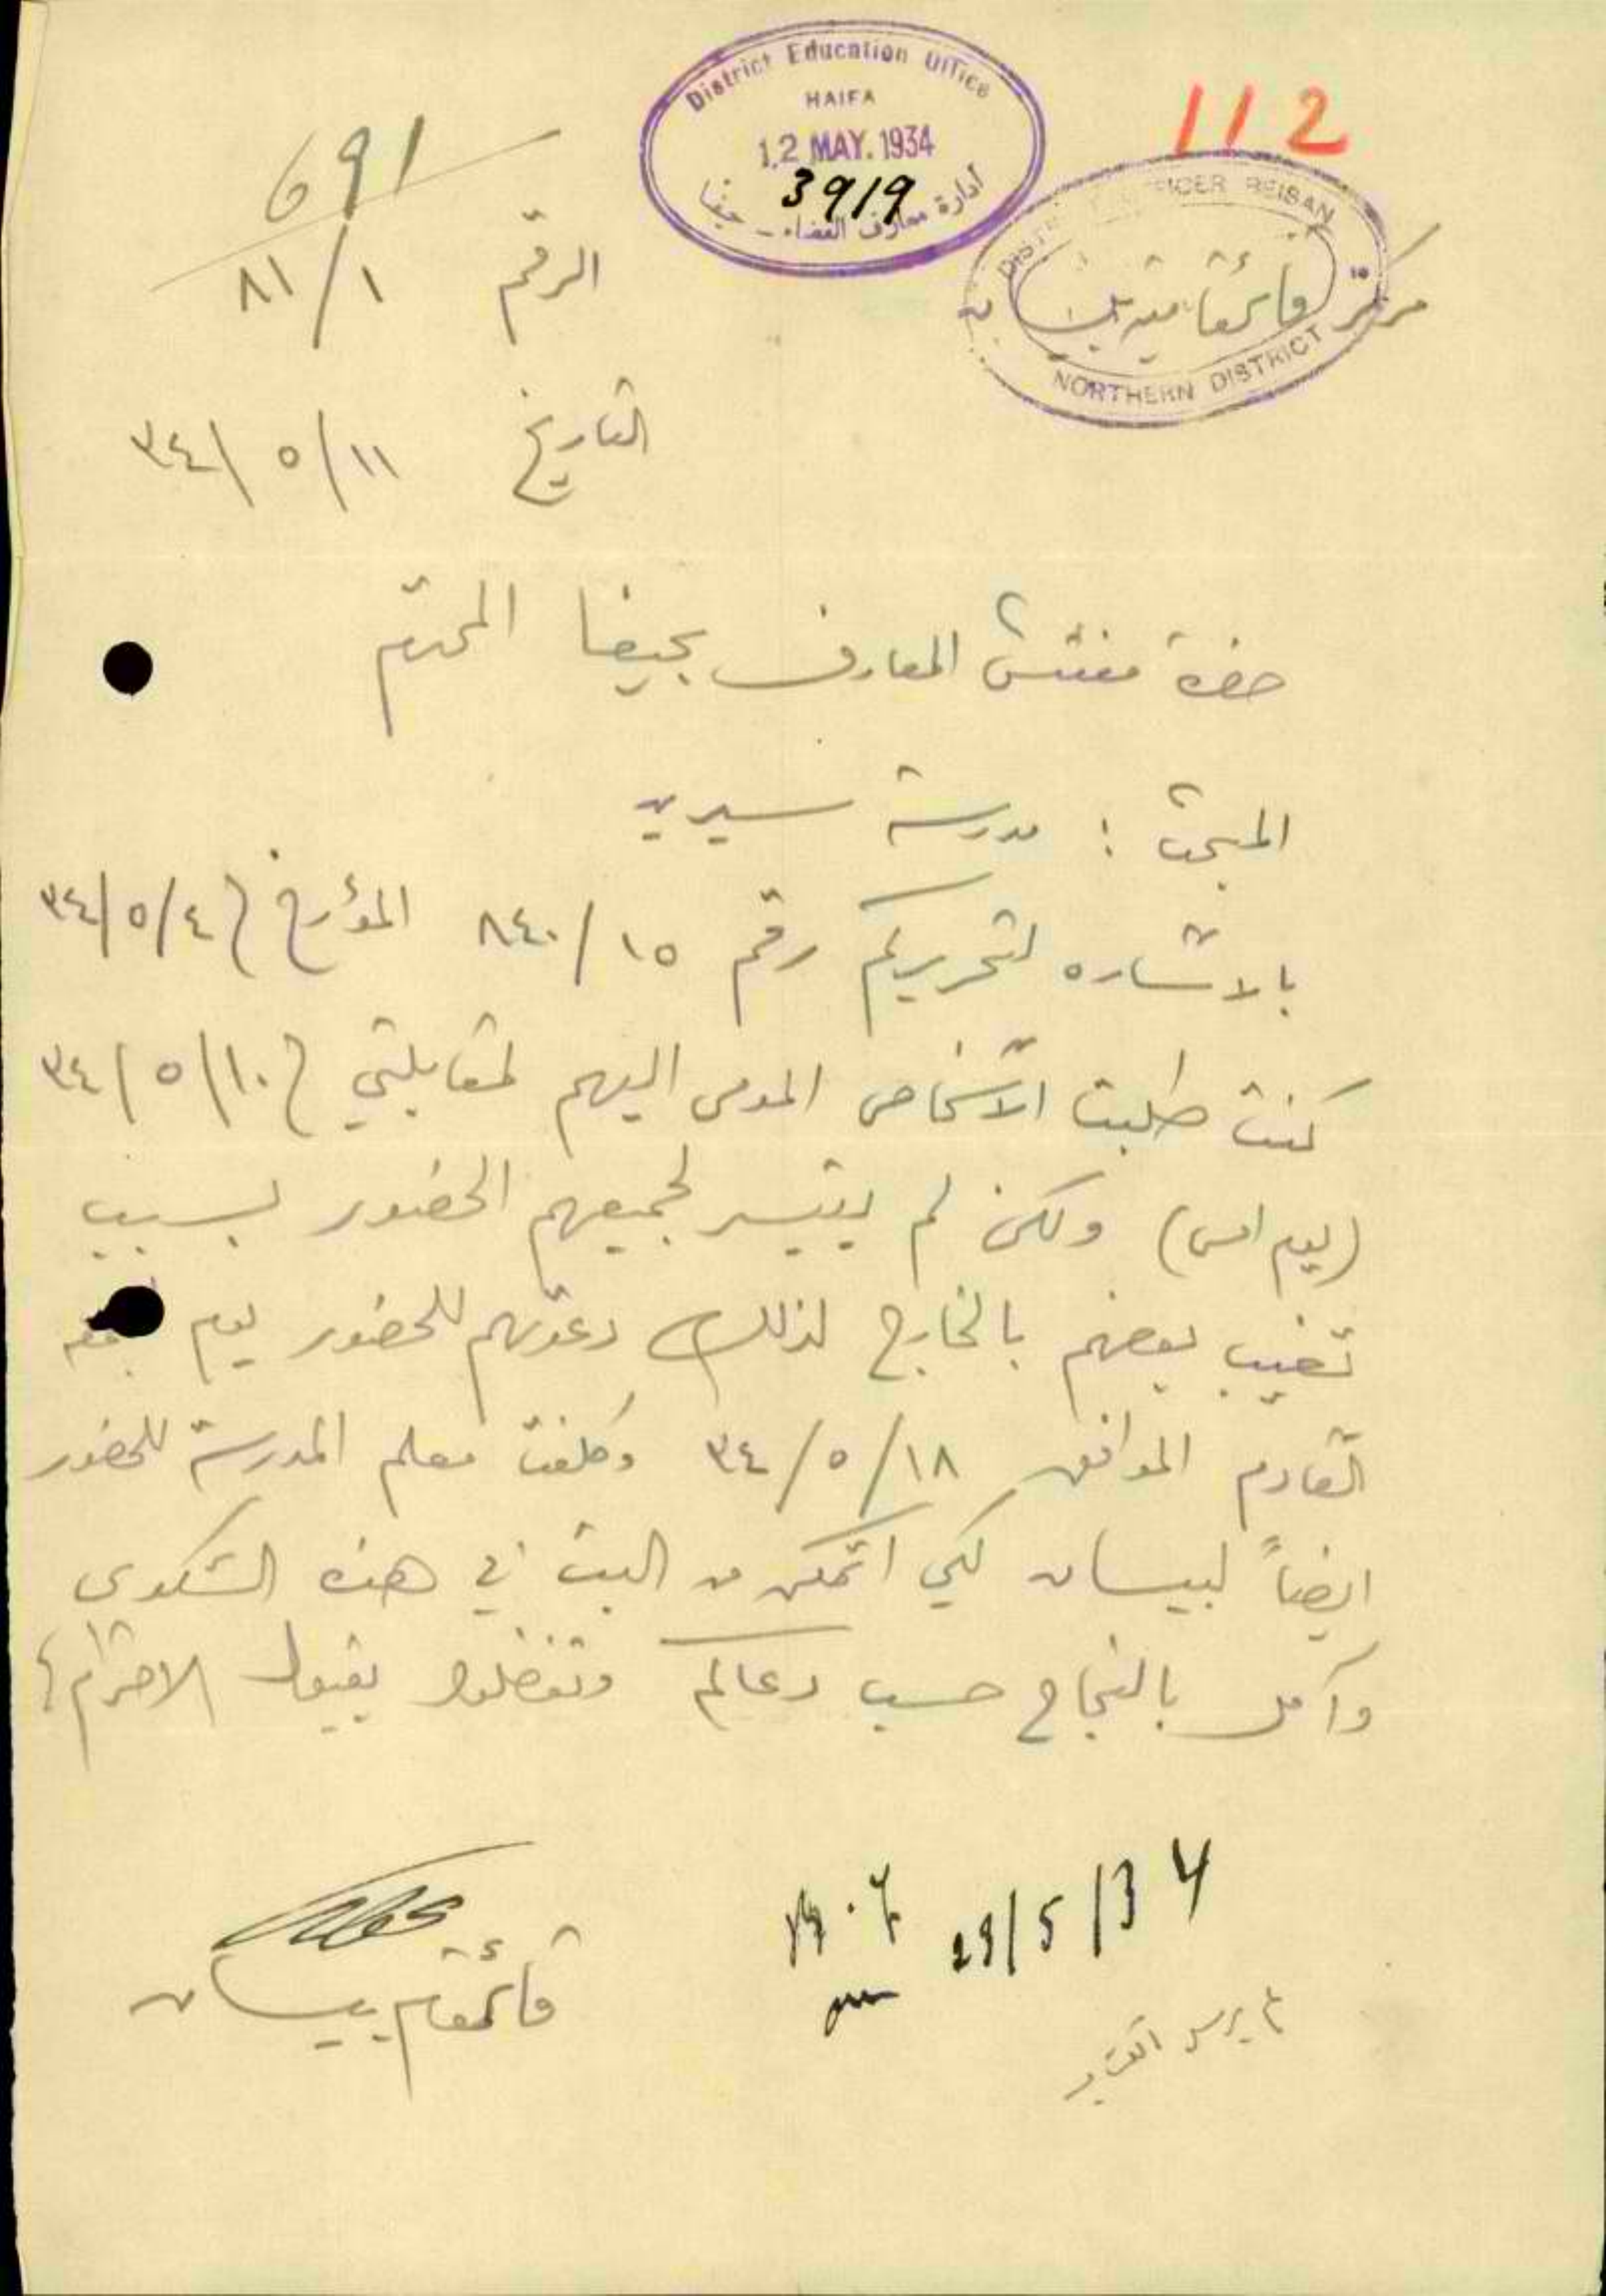 112
District Education Office
HAIFA
12 MAY. 1934
3919
أدارة معارف القضاء - حيفا
691
الرقم ١ / ٨١
DISTRICT OFFICER BEISAN
مركز قائمقامية بيسان
NORTHERN DISTRICT
التاريخ ١١ / ٥ / ٣٤
حضرة مفتش المعارف بحيفا المحترم
المبحث : مدرسة سيرين
بالاشاره لتحريركم رقم ١٥ / ٨٤٠ المؤرخ في ٤ / ٥ / ٣٤
كنت طلبت الأشخاص المومى اليهم لمقابلتي في ١٠ / ٥ / ٣٤
(يوم امس) ولكن لم يتيسر لجميعهم الحضور بسبب
تغيب بعضهم بالخارج لذلك دعوتهم للحضور يوم
القادم الموافق ١٨ / ٥ / ٣٤ وكلفت معلم المدرسة للحضور
ايضاً لبيسان لكي اتمكن من البت في هذه الشكوى
وآمل بالنجاح حسب دعاكم وتفضلوا بقبول الاحترام
قائمقام بيسان
29/5/34